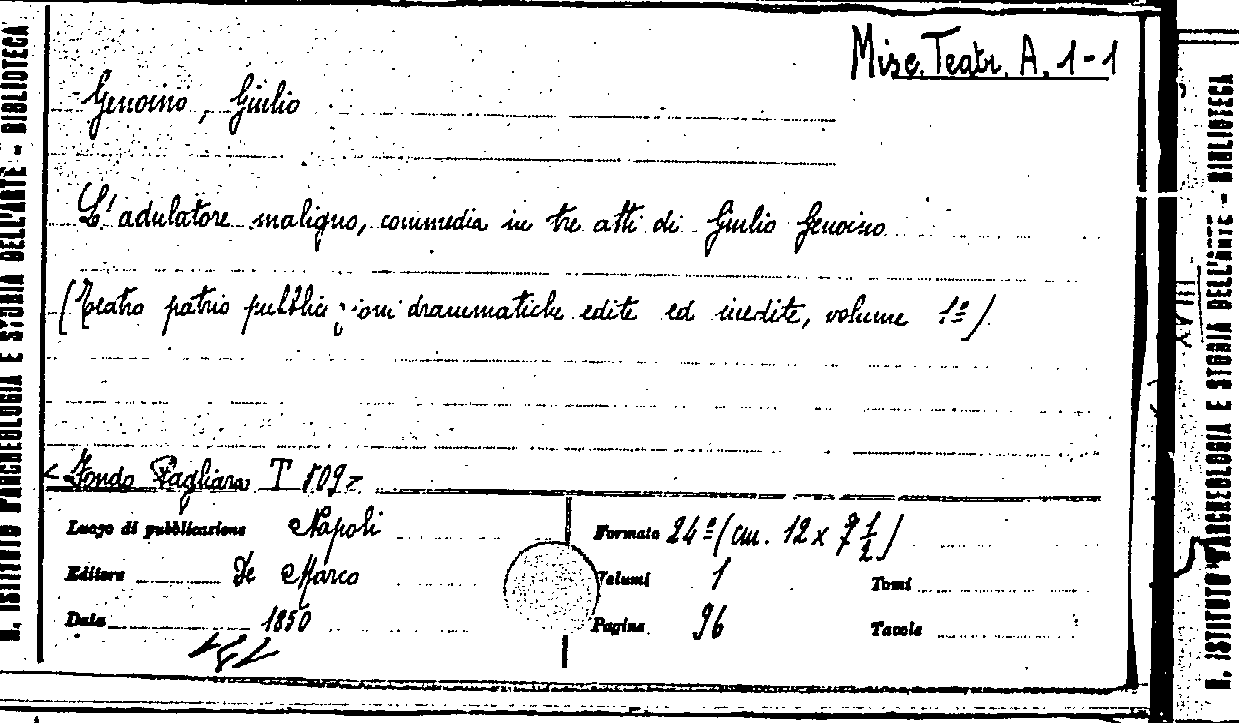 Misc. Teatr. A. 1-1
Genoino, Giulio
L'adulatore maligno, commedia in tre atti di Giulio Genoino
(Teatro patrio pubblicazioni drammatiche edite ed inedite, volume 1º)
Fondo Pagliara T
Luogo di pubblicazione Napoli
Formato 24º (cm. 12 x 7 1/2)
Editore De Marco
Volumi 1
Tomi
Data 1850
Pagine 96
Tavole
R. ISTITUTO D'ARCHEOLOGIA E STORIA DELL'ARTE - BIBLIOTECA
R. ISTITUTO D'ARCHEOLOGIA E STORIA DELL'ARTE - BIBLIOTECA
XVIII